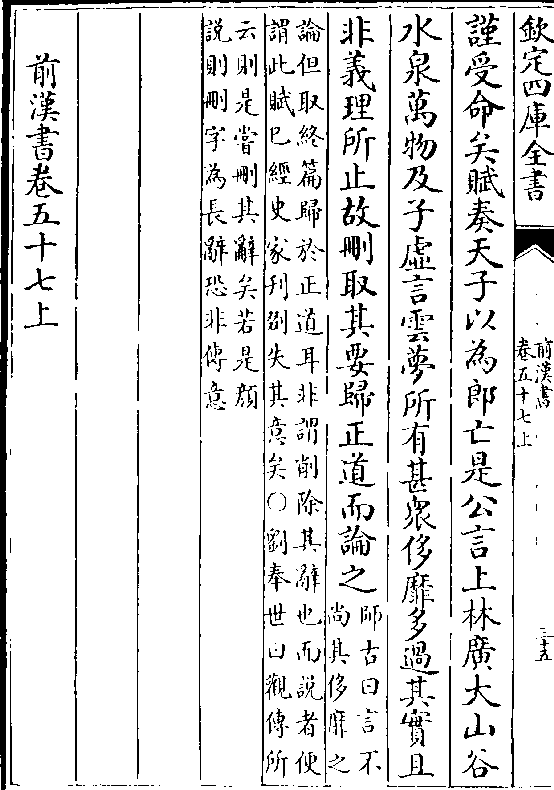 欽定四庫全書
前漢書
卷五十七上
三十五
謹受命矣賦奏天子以為郎亡是公言上林廣大山谷
水泉萬物及子虛言雲夢所有甚衆侈靡多過其實且
非義理所止故刪取其要歸正道而論之
師古曰言不
尚其侈靡之
論但取終篇歸於正道耳非謂削除其辭也而說者便
謂此賦已經史家刋剟失其意矣○劉奉世曰觀傳所
云則是嘗刪其辭矣若是顔
說則刪字為長辭恐非傳意
前漢書卷五十七上